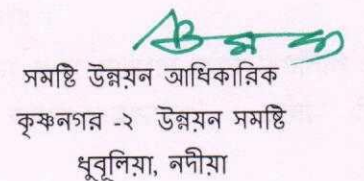 সমষ্টি উন্নয়ন আধিকারিক
কৃষ্ণনগর -২ উন্নয়ন সমষ্টি
ধুবুলিয়া, নদীয়া